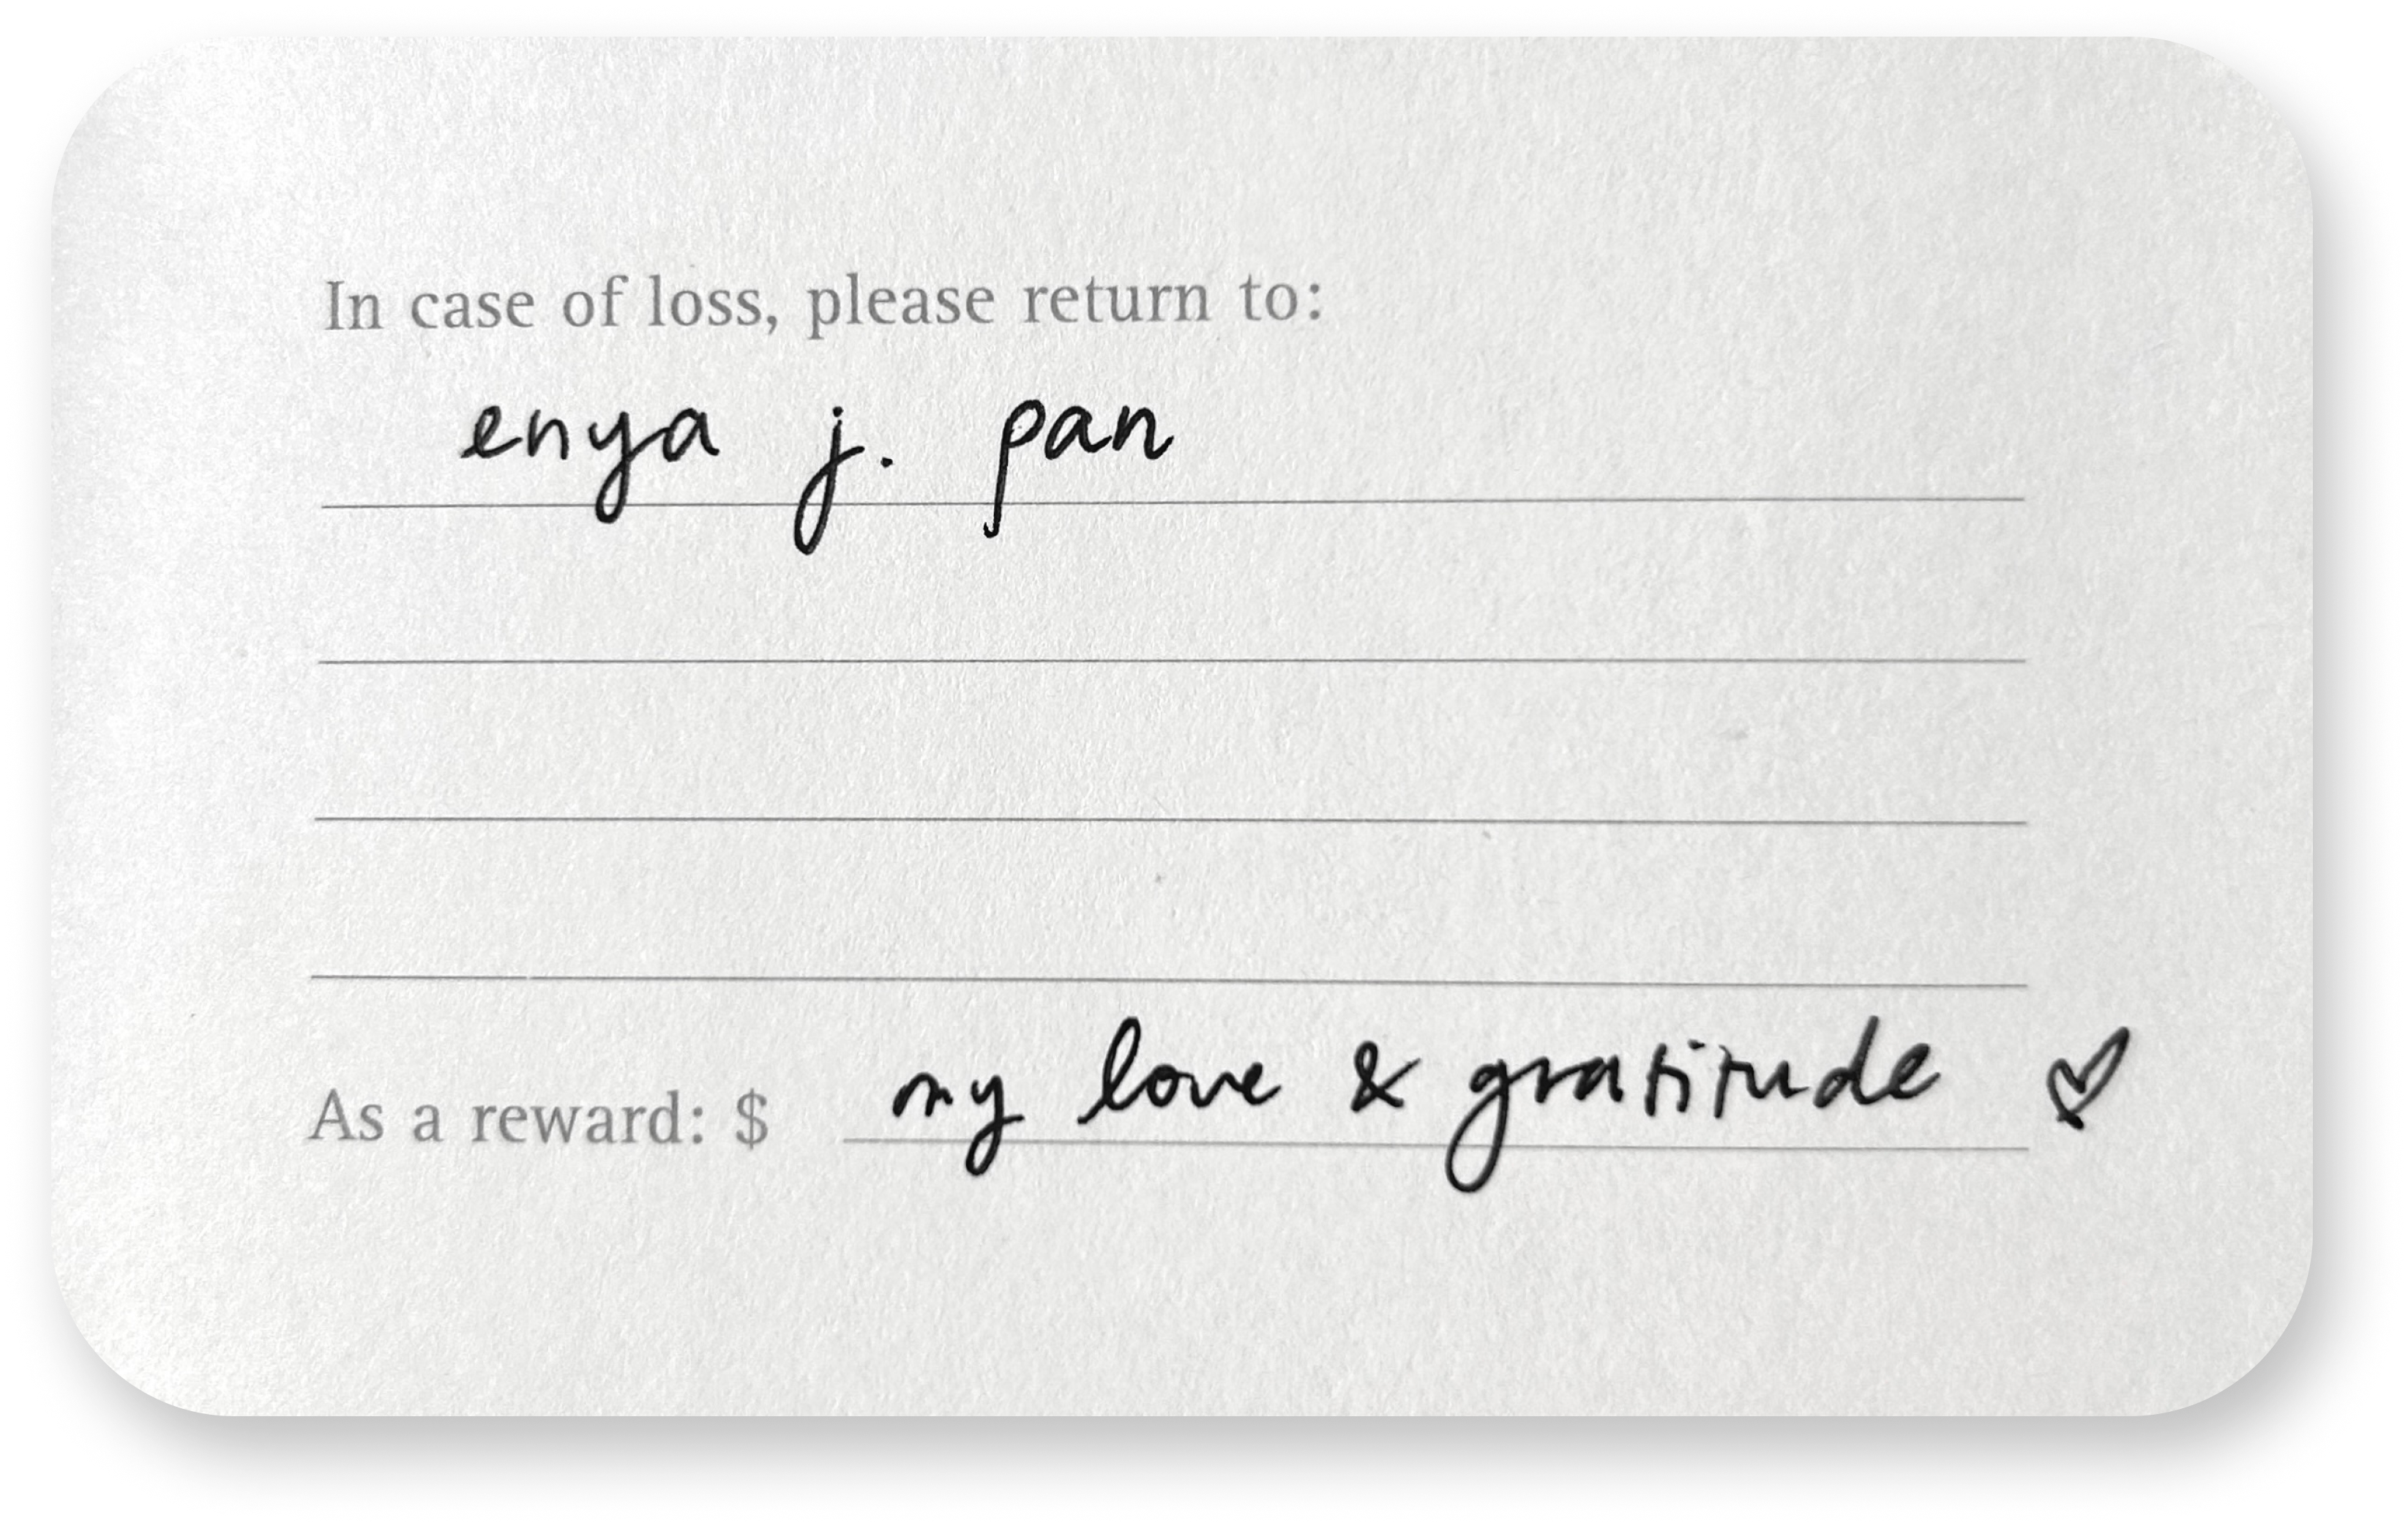 In case of loss, please return to:
enya j. pan
As a reward: $ my love & gratitude